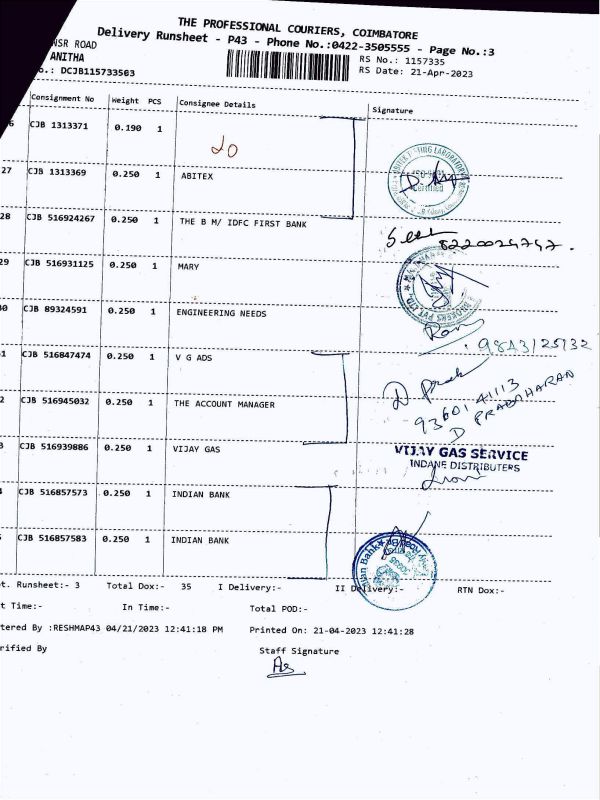 THE PROFESSIONAL COURIERS, COIMBATORE
Delivery Runsheet - P43 - Phone No.:0422-3505555 - Page No.:3
NSR ROAD
ANITHA
o.: DCJB115733503
RS No.: 1157335
RS Date: 21-Apr-2023
Consignment No Weight PCS Consignee Details Signature
6 CJB 1313371 0.190 1
27 CJB 1313369 0.250 1 ABITEX
28 CJB 516924267 0.250 1 THE B M/ IDFC FIRST BANK
29 CJB 516931125 0.250 1 MARY
30 CJB 89324591 0.250 1 ENGINEERING NEEDS
9843125732
1 CJB 516847474 0.250 1 V G ADS
2 CJB 516945032 0.250 1 THE ACCOUNT MANAGER
93601 41113
D PRABAHARAN
3 CJB 516939886 0.250 1 VIJAY GAS
VIJAY GAS SERVICE
INDANE DISTRIBUTERS
4 CJB 516857573 0.250 1 INDIAN BANK
5 CJB 516857583 0.250 1 INDIAN BANK
t. Runsheet:- 3 Total Dox:- 35 I Delivery:- II Delivery:- RTN Dox:-
t Time:- In Time:- Total POD:-
tered By :RESHMAP43 04/21/2023 12:41:18 PM Printed On: 21-04-2023 12:41:28
rified By Staff Signature